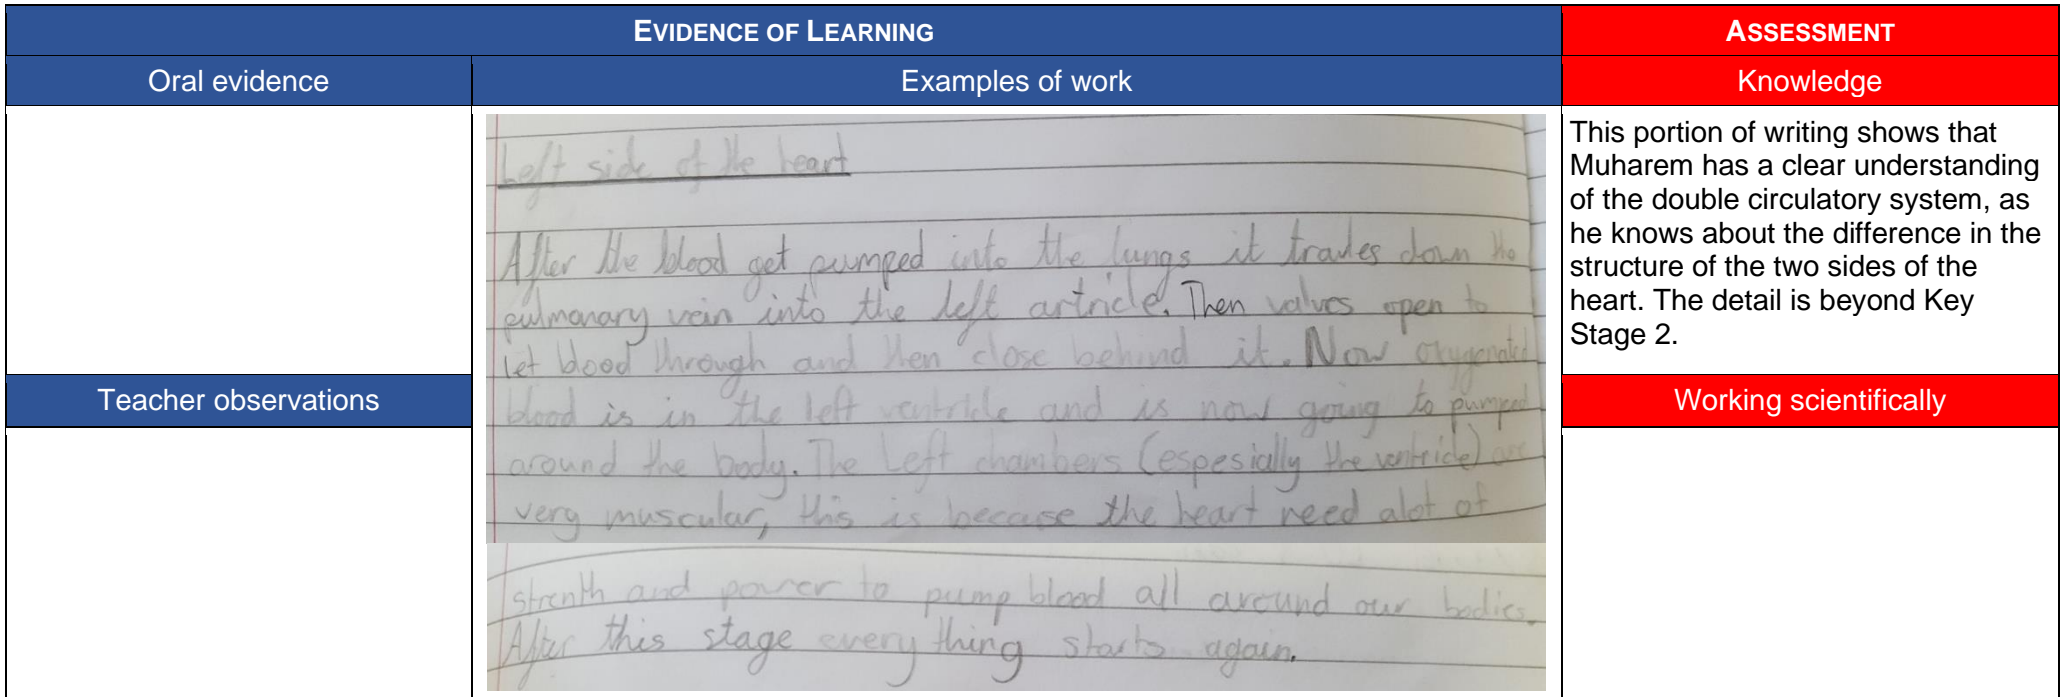 EVIDENCE OF LEARNING
ASSESSMENT
Oral evidence
Examples of work
Knowledge
Left side of the heart
After the blood get pumped into the lungs it travles down the
pulmanary vein into the left artricle. Then valves open to
let blood through and then close behind it. Now oxygenated
blood is in the left ventricle and is now going to pumped
around the body. The Left chambers (espesially the ventricle) are
very muscular, this is because the heart need alot of
strenth and power to pump blood all around our bodies.
After this stage every thing starts again.
This portion of writing shows that
Muharem has a clear understanding
of the double circulatory system, as
he knows about the difference in the
structure of the two sides of the
heart. The detail is beyond Key
Stage 2.
Teacher observations
Working scientifically